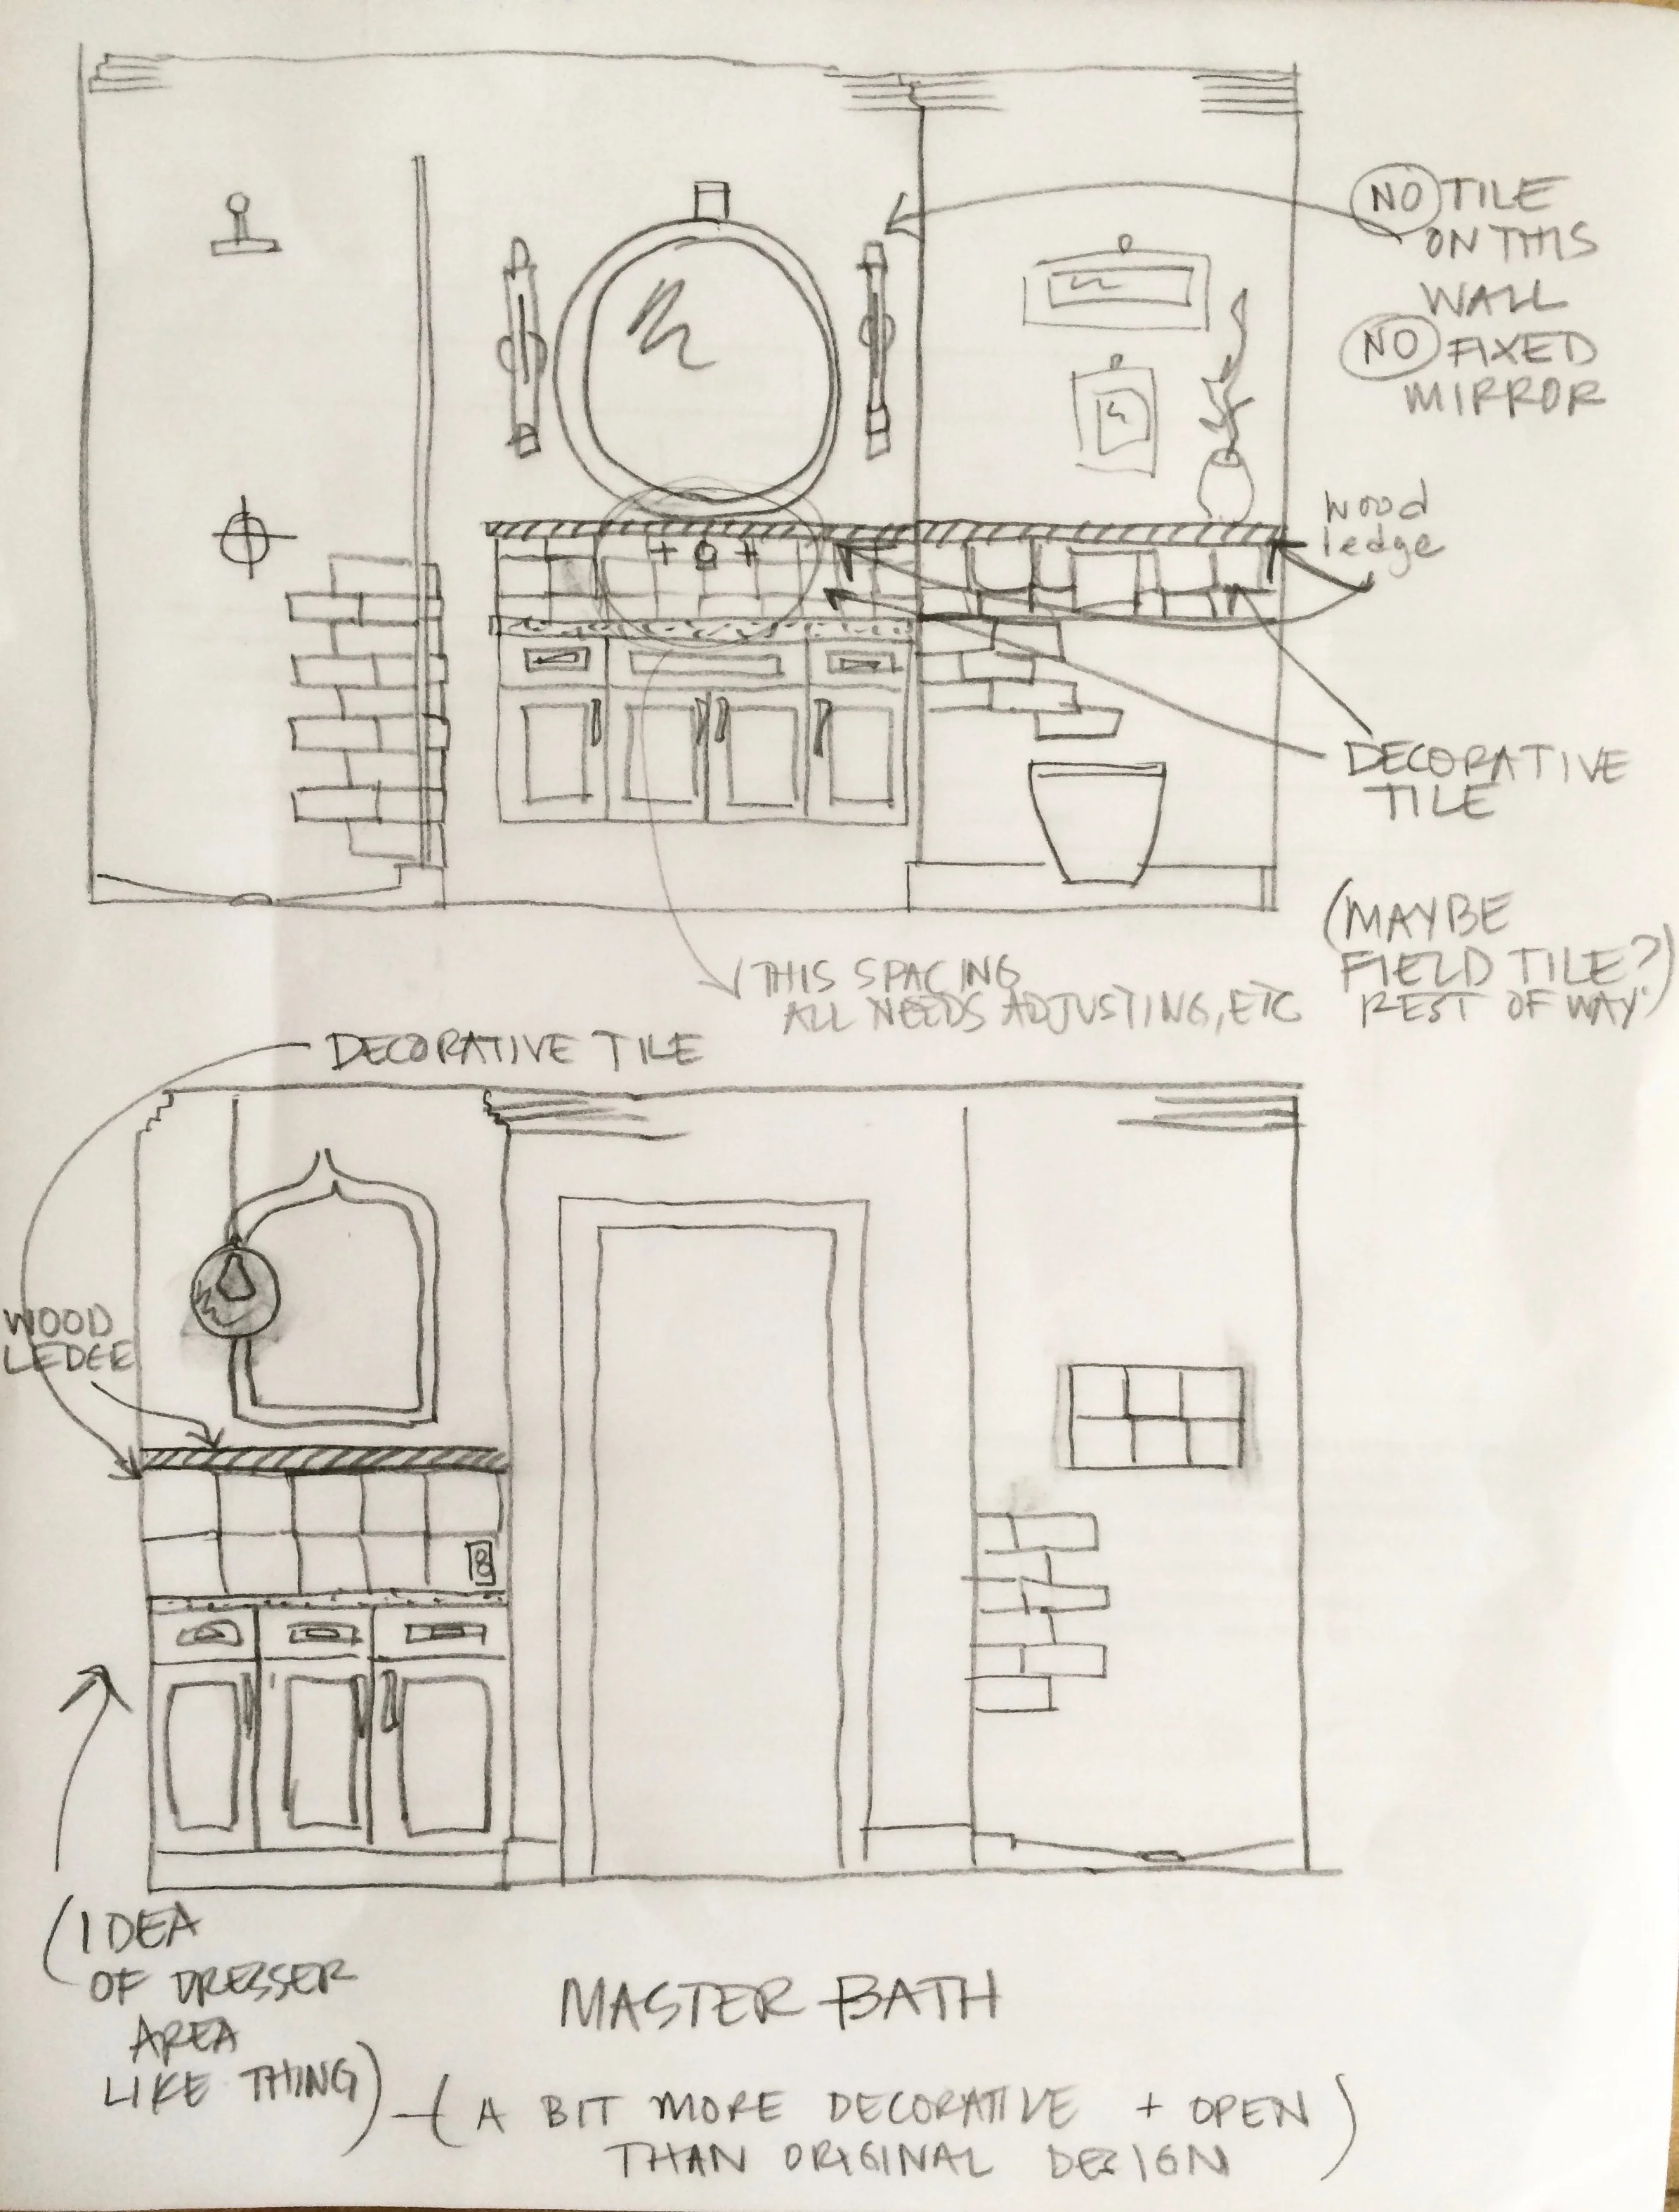 NO TILE
ON THIS
WALL
NO FIXED
MIRROR
wood
ledge
DECORATIVE
TILE
(MAYBE
FIELD TILE?)
REST OF WAY
THIS SPACING
ALL NEEDS ADJUSTING, ETC
DECORATIVE TILE
WOOD
LEDGE
(IDEA
OF DRESSER
AREA
LIKE THING)
MASTER BATH
(A BIT MORE DECORATIVE + OPEN
THAN ORIGINAL DESIGN)